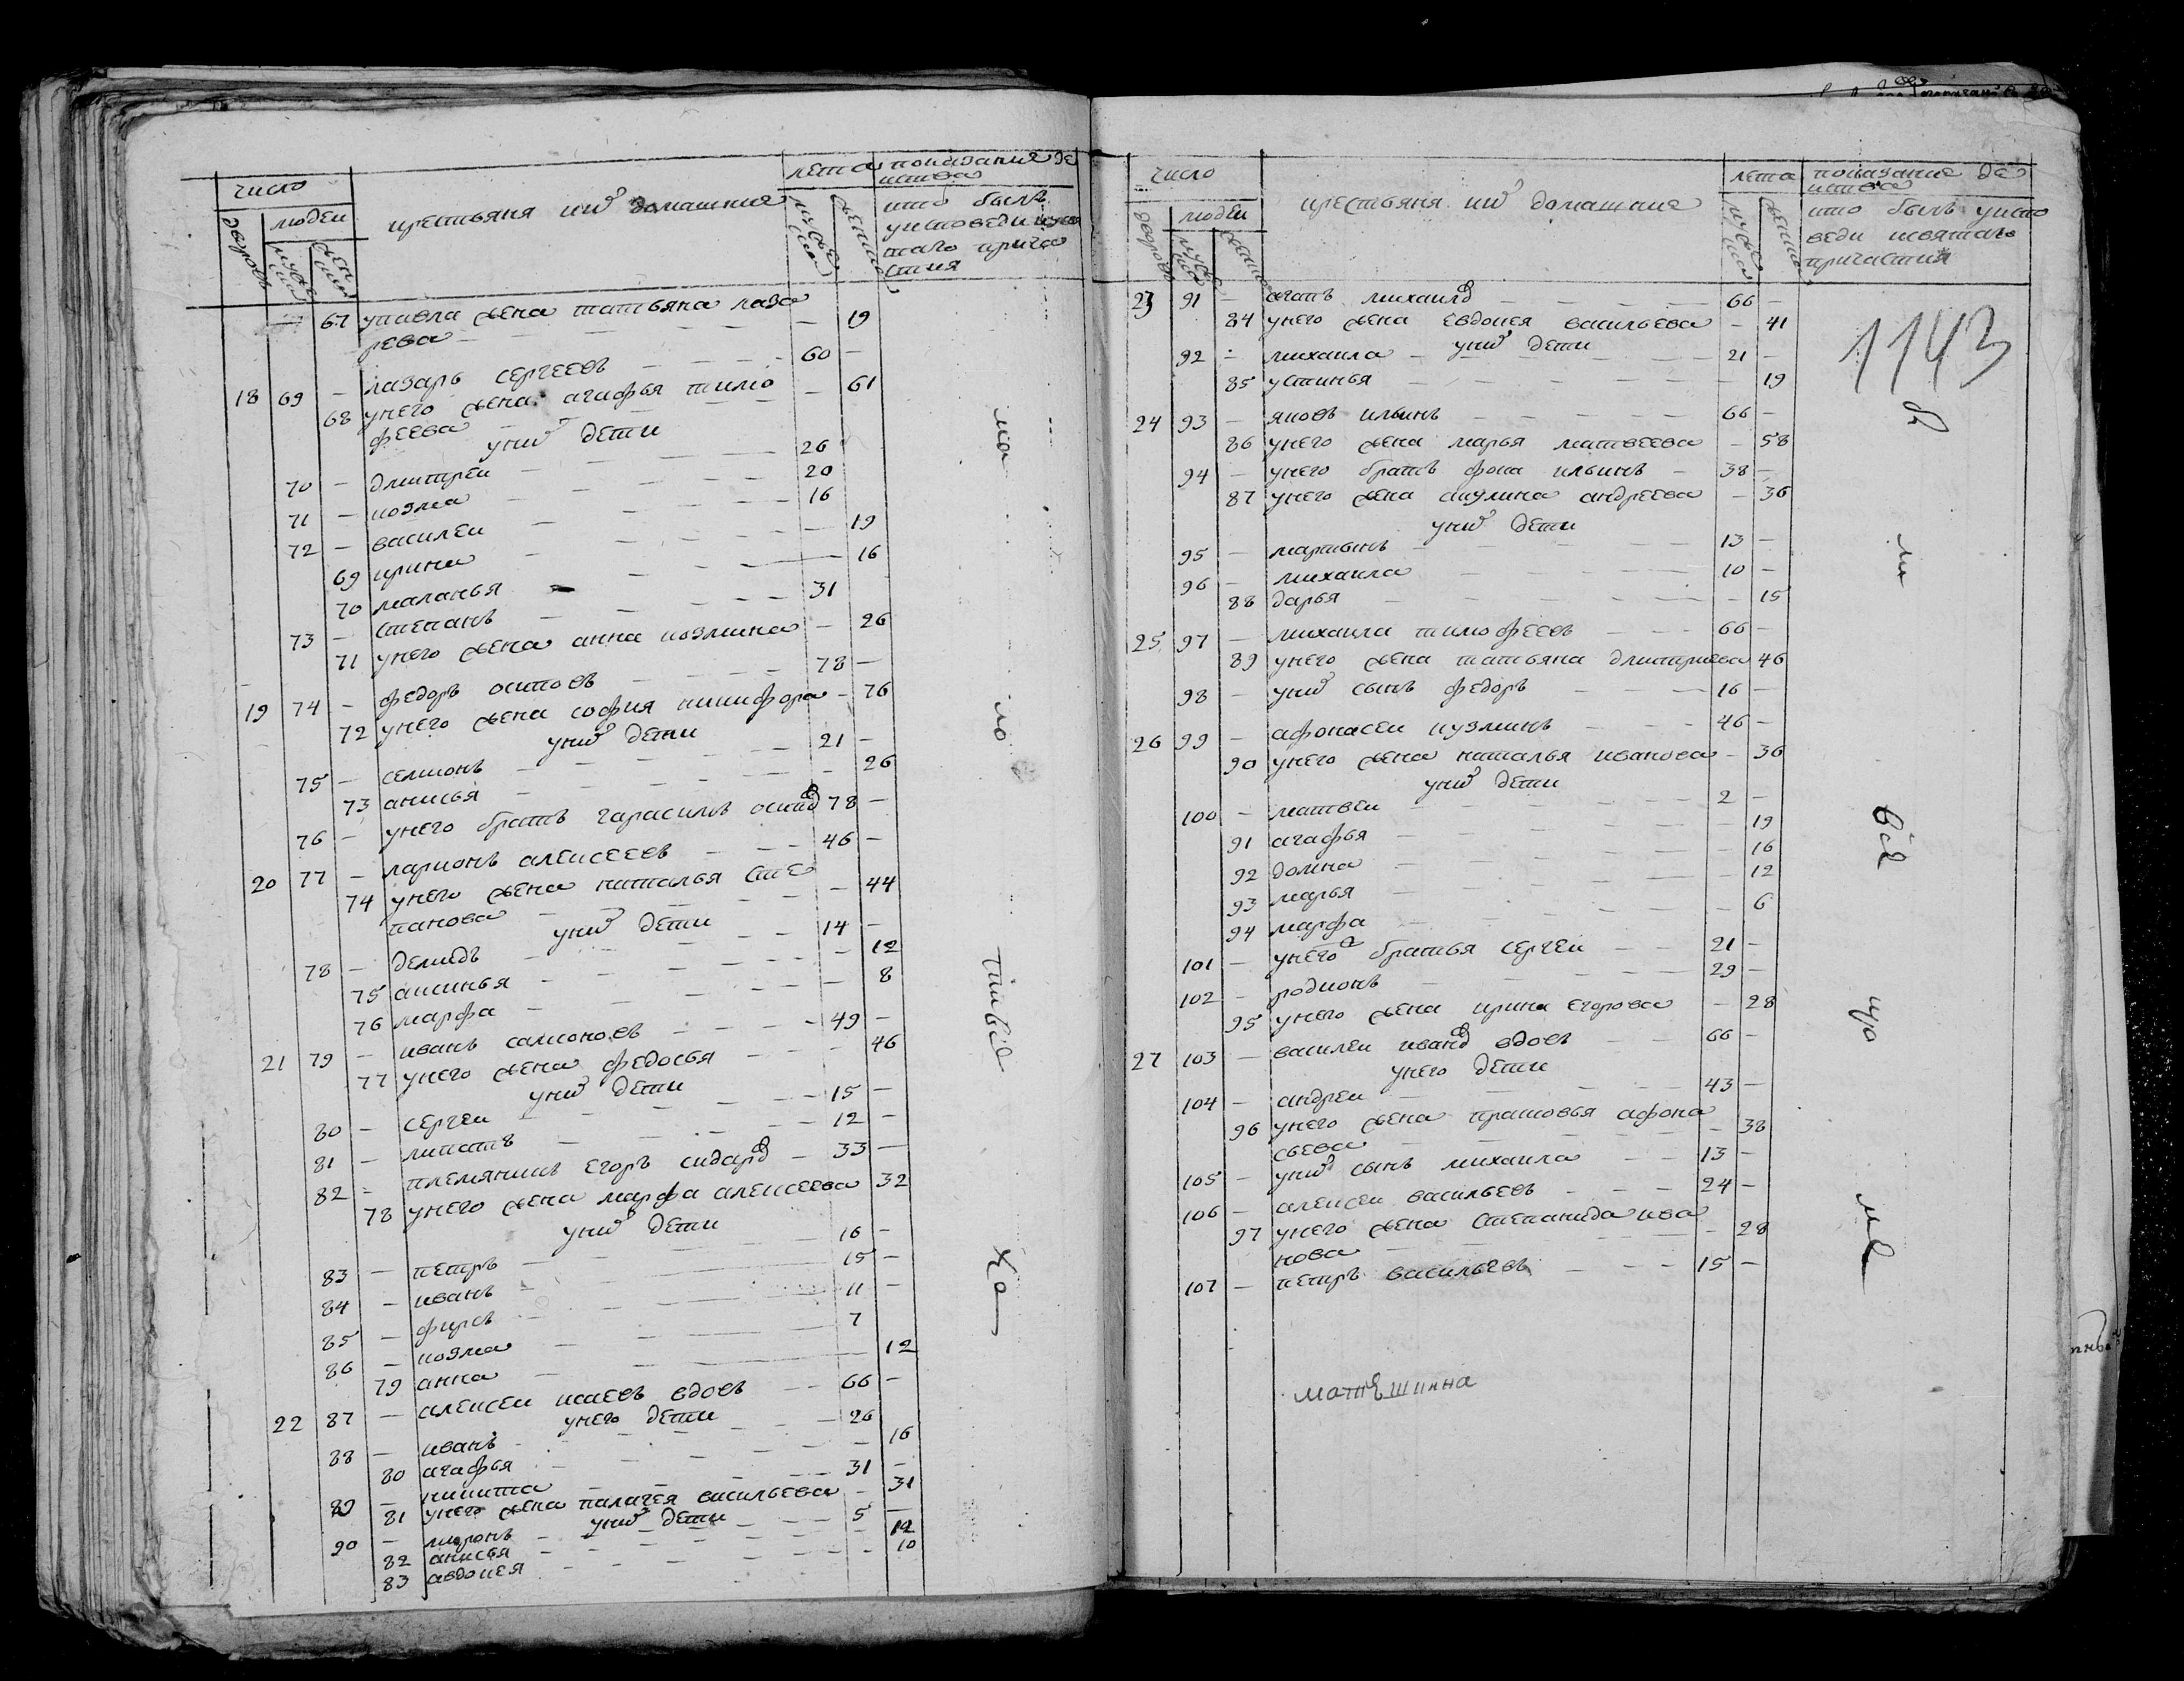 число
крестьяня ихъ домашние
лета
показание де
иства
дворовъ
людеи
муже
ска
женска
мужеска
женска
кто былъ
уисповеди исвя
таго прича
стия
67 упавла жена татьяна лаза
рева — 19
18 69 — лазарь сергеевъ — 60 —
68 унего жена агафья тимо — 61
феева
уних дети
70 — дмитреи — 26
71 — козма — 20
72 — василеи — 16
69 ирина — 19
70 маланья — 16
73 — степанъ — 31
71 унего жена анна козмина — 26
19 74 — федоръ осиповъ — 78 —
72 унего жена софия никифора — 76
уних дети
75 — семионъ — 21 —
73 анисья — 26
76 — унего братъ гарасимъ осипов 78 —
20 77 — ларионъ алексеевъ — 46 —
74 унего жена наталья сте
панова — 44
уних дети
78 — демидъ — 14 —
75 аксинья — 12
76 марфа — 8
21 79 — иванъ самоновъ — 49 —
77 унего жена федосья — 46
уних дети
80 — сергеи — 15 —
81 — липатъ — 12 —
82 — племяникъ егоръ сидаров — 33 —
78 унего жена марфа алексеева 32
уних дети
83 — петръ — 16 —
84 — иванъ — 15 —
85 — фирсъ — 11 —
86 — козма — 7
79 анна — 12
22 87 — алексеи исаевъ вдовъ — 66 —
унего дети
88 — иванъ — 26
80 агафья — 16
89 — никита — 31 —
81 унего жена палагея васильева — 31
уних дети
90 — миронъ — 5 —
82 анисья — 12
83 авдокея — 10
число
крестьяня ихъ домашние
лета
показание де
иства
дворовъ
людеи
муже
ска
женска
мужеска
женска
кто былъ уиспо
веди исвятаго
причастия
1143
23 91 — агапъ михаилов — 66 —
84 унего жена евдокея васильева — 41
уних дети
92 — михаила — 21 —
85 устинья — 19
24 93 — яковъ ильинъ — 66 —
86 унего жена марья матвеева — 58
94 — унего братъ фока ильинъ — 38 —
87 унего жена акулина андреева — 36
уних дети
95 — мартынъ — 13 —
96 — михаила — 10 —
88 дарья — 15
25 97 — михаила тимофеевъ — 66 —
89 унего жена татьяна дмитриева 46
98 — уних сынъ федоръ — 16 —
26 99 — афонасеи кузминъ — 46 —
90 унего жена наталья иванова — 36
уних дети
100 — матвеи — 2 —
91 агафья — 19
92 домна — 16
93 марья — 12
94 марфа — 6
101 — унего братья сергеи — 21 —
102 — родионъ — 29 —
95 унего жена ирина егорова — 28
27 103 — василеи иванов вдовъ — 66 —
унего дети
104 — андреи — 43 —
96 унего жена прасковья афона
сьева — 38
105 — уних сынъ михаила — 13 —
106 — алексеи васильевъ — 24 —
97 унего жена степанида ива
нова — 28
107 — петръ васильевъ — 15 —